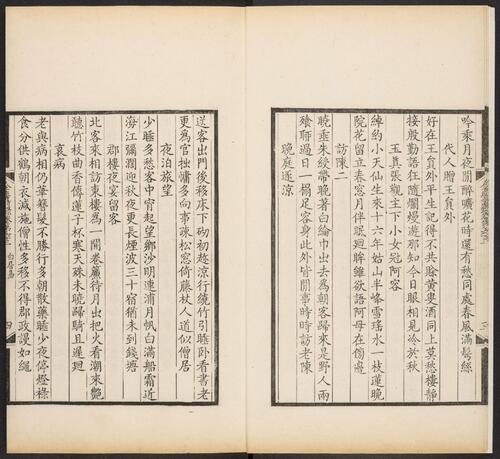 吟乘月夜閑醉曠花時還有愁同處春風滿鬢絲
代人贈王員外
好在王員外平生記得不共賒黃叟酒同上莫愁樓靜
接殷勤語狂隨爛熳遊那知今日眼相見冷於秋
玉真張觀主下小女冠阿容
綽約小天仙生來十六年姑山半峰雪瑤水一枝蓮晚
院花留立春窓月伴眠迴眸雖欲語阿母在傍邊
訪陳二
曉垂朱綬帶晚著白綸巾出去為朝客歸來是野人兩
飡聊過日一榻足容身此外皆閒事時時訪老陳
晚庭逐涼
三
送客出門後移床下砌初趂涼行繞竹引睡臥看書老
更為官拙慵多向事疎松窓倚藤杖人道似僧居
夜泊旅望
少睡多愁客中宵起望鄉沙明連浦月帆白滿船霜近
海江彌闊迎秋夜更長煙波三十宿猶未到錢塘
郡樓夜宴留客
北客來相訪東樓為一開卷簾待月出把火看潮來艷
聽竹枝曲香傳蓮子杯寒天殊未曉歸騎且遲迴
衰病
老與病相仍華簪髮不勝行多朝散藥睡少夜停燈祿
食分供鶴朝衣減施僧性多移不得郡政謾如繩
四